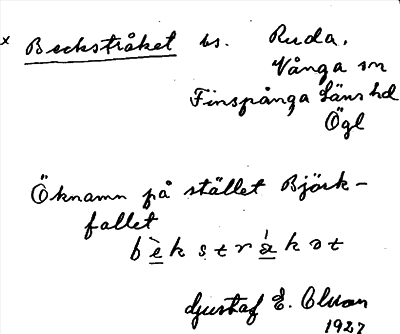 x Beckstråket bs. Ruda,
Vånga sn
Finspånga Läns hd
Ögl
Öknamn på stället Björk-
fallet
bèkstråkət
Gustaf E. Olson
1927